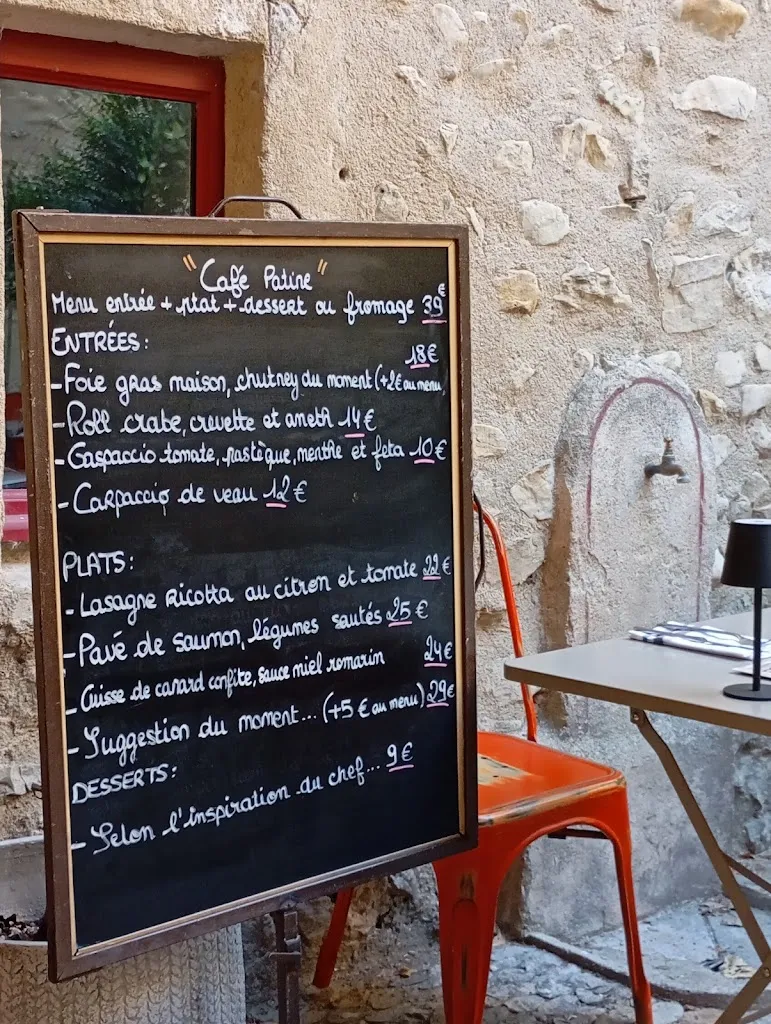 "Café Patine"
Menu entrée + plat + dessert ou fromage 39€
ENTRÉES:
18€
-Foie gras maison, chutney du moment (+2€ au menu)
-Roll crabe, crevette et aneth 14€
-Gaspaccio tomate, pastèque, menthe et feta 10€
-Carpaccio de veau 12€
PLATS:
-Lasagne Ricotta au citron et tomate 22€
-Pavé de saumon, légumes sautés 25€
-Cuisse de canard confite, sauce miel romarin 24€
-Suggestion du moment... (+5€ au menu) 29€
DESSERTS:
-Selon l'inspiration du chef... 9€